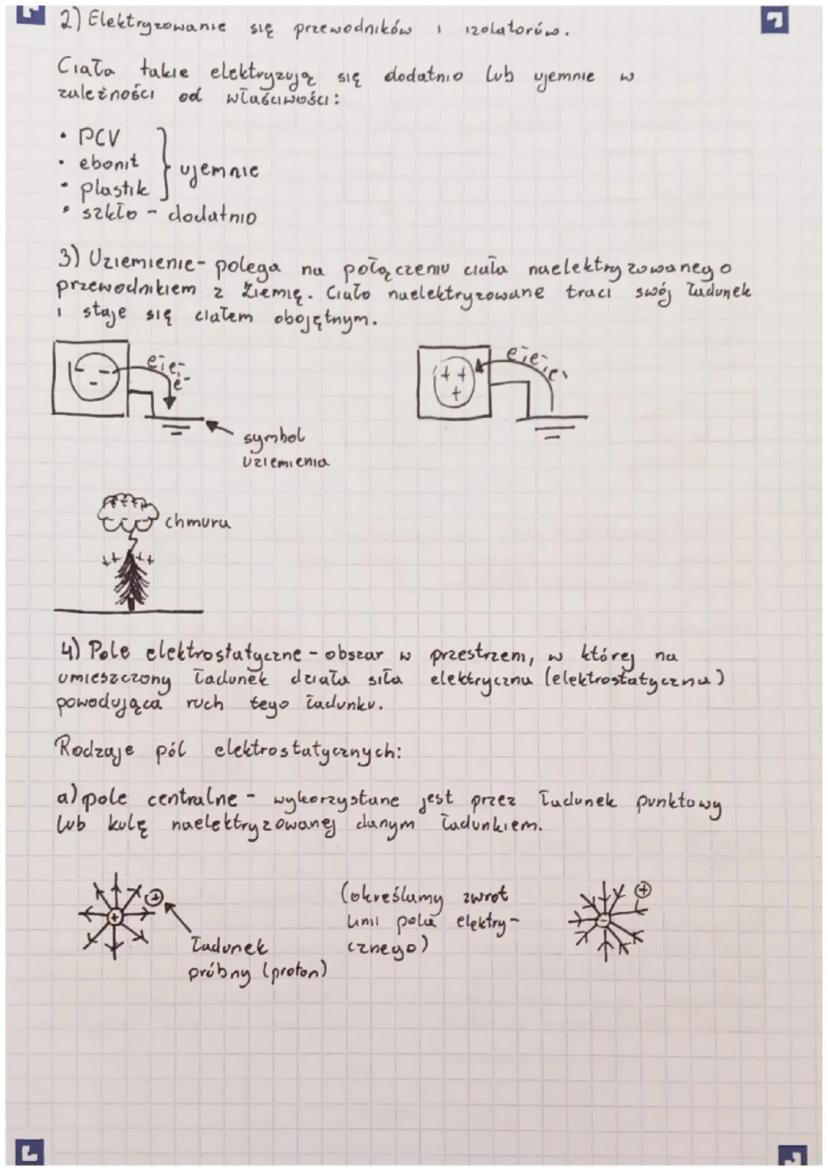 2) Elektryzowanie się przewodników i izolatorów.
Ciała takie elektryzują się dodatnio lub ujemnie w
zależności od właściwości:
• PCV
• ebonit
• plastik
ujemnie
• szkło - dodatnio
3) Uziemienie - polega na połączeniu ciała naelektryzowanego
przewodnikiem z Ziemię. Ciało naelektryzowane traci swój ładunek
i staje się ciałem obojętnym.
- - -
e- e- e- e-
+ + +
e- e- e- e-
symbol
uziemienia
+ + + +
chmura
+ + + +
4) Pole elektrostatyczne - obszar w przestrzeni, w której na
umieszczony ładunek działa siła elektryczna (elektrostatyczna)
powodująca ruch tego ładunku.
Rodzaje pól elektrostatycznych:
a) pole centralne - wykorzystane jest przez ładunek punktowy
lub kulę naelektryzowanej danym ładunkiem.
+ +
ładunek
próbny (proton)
(określamy zwrot
linii pola elektry-
cznego)
- +